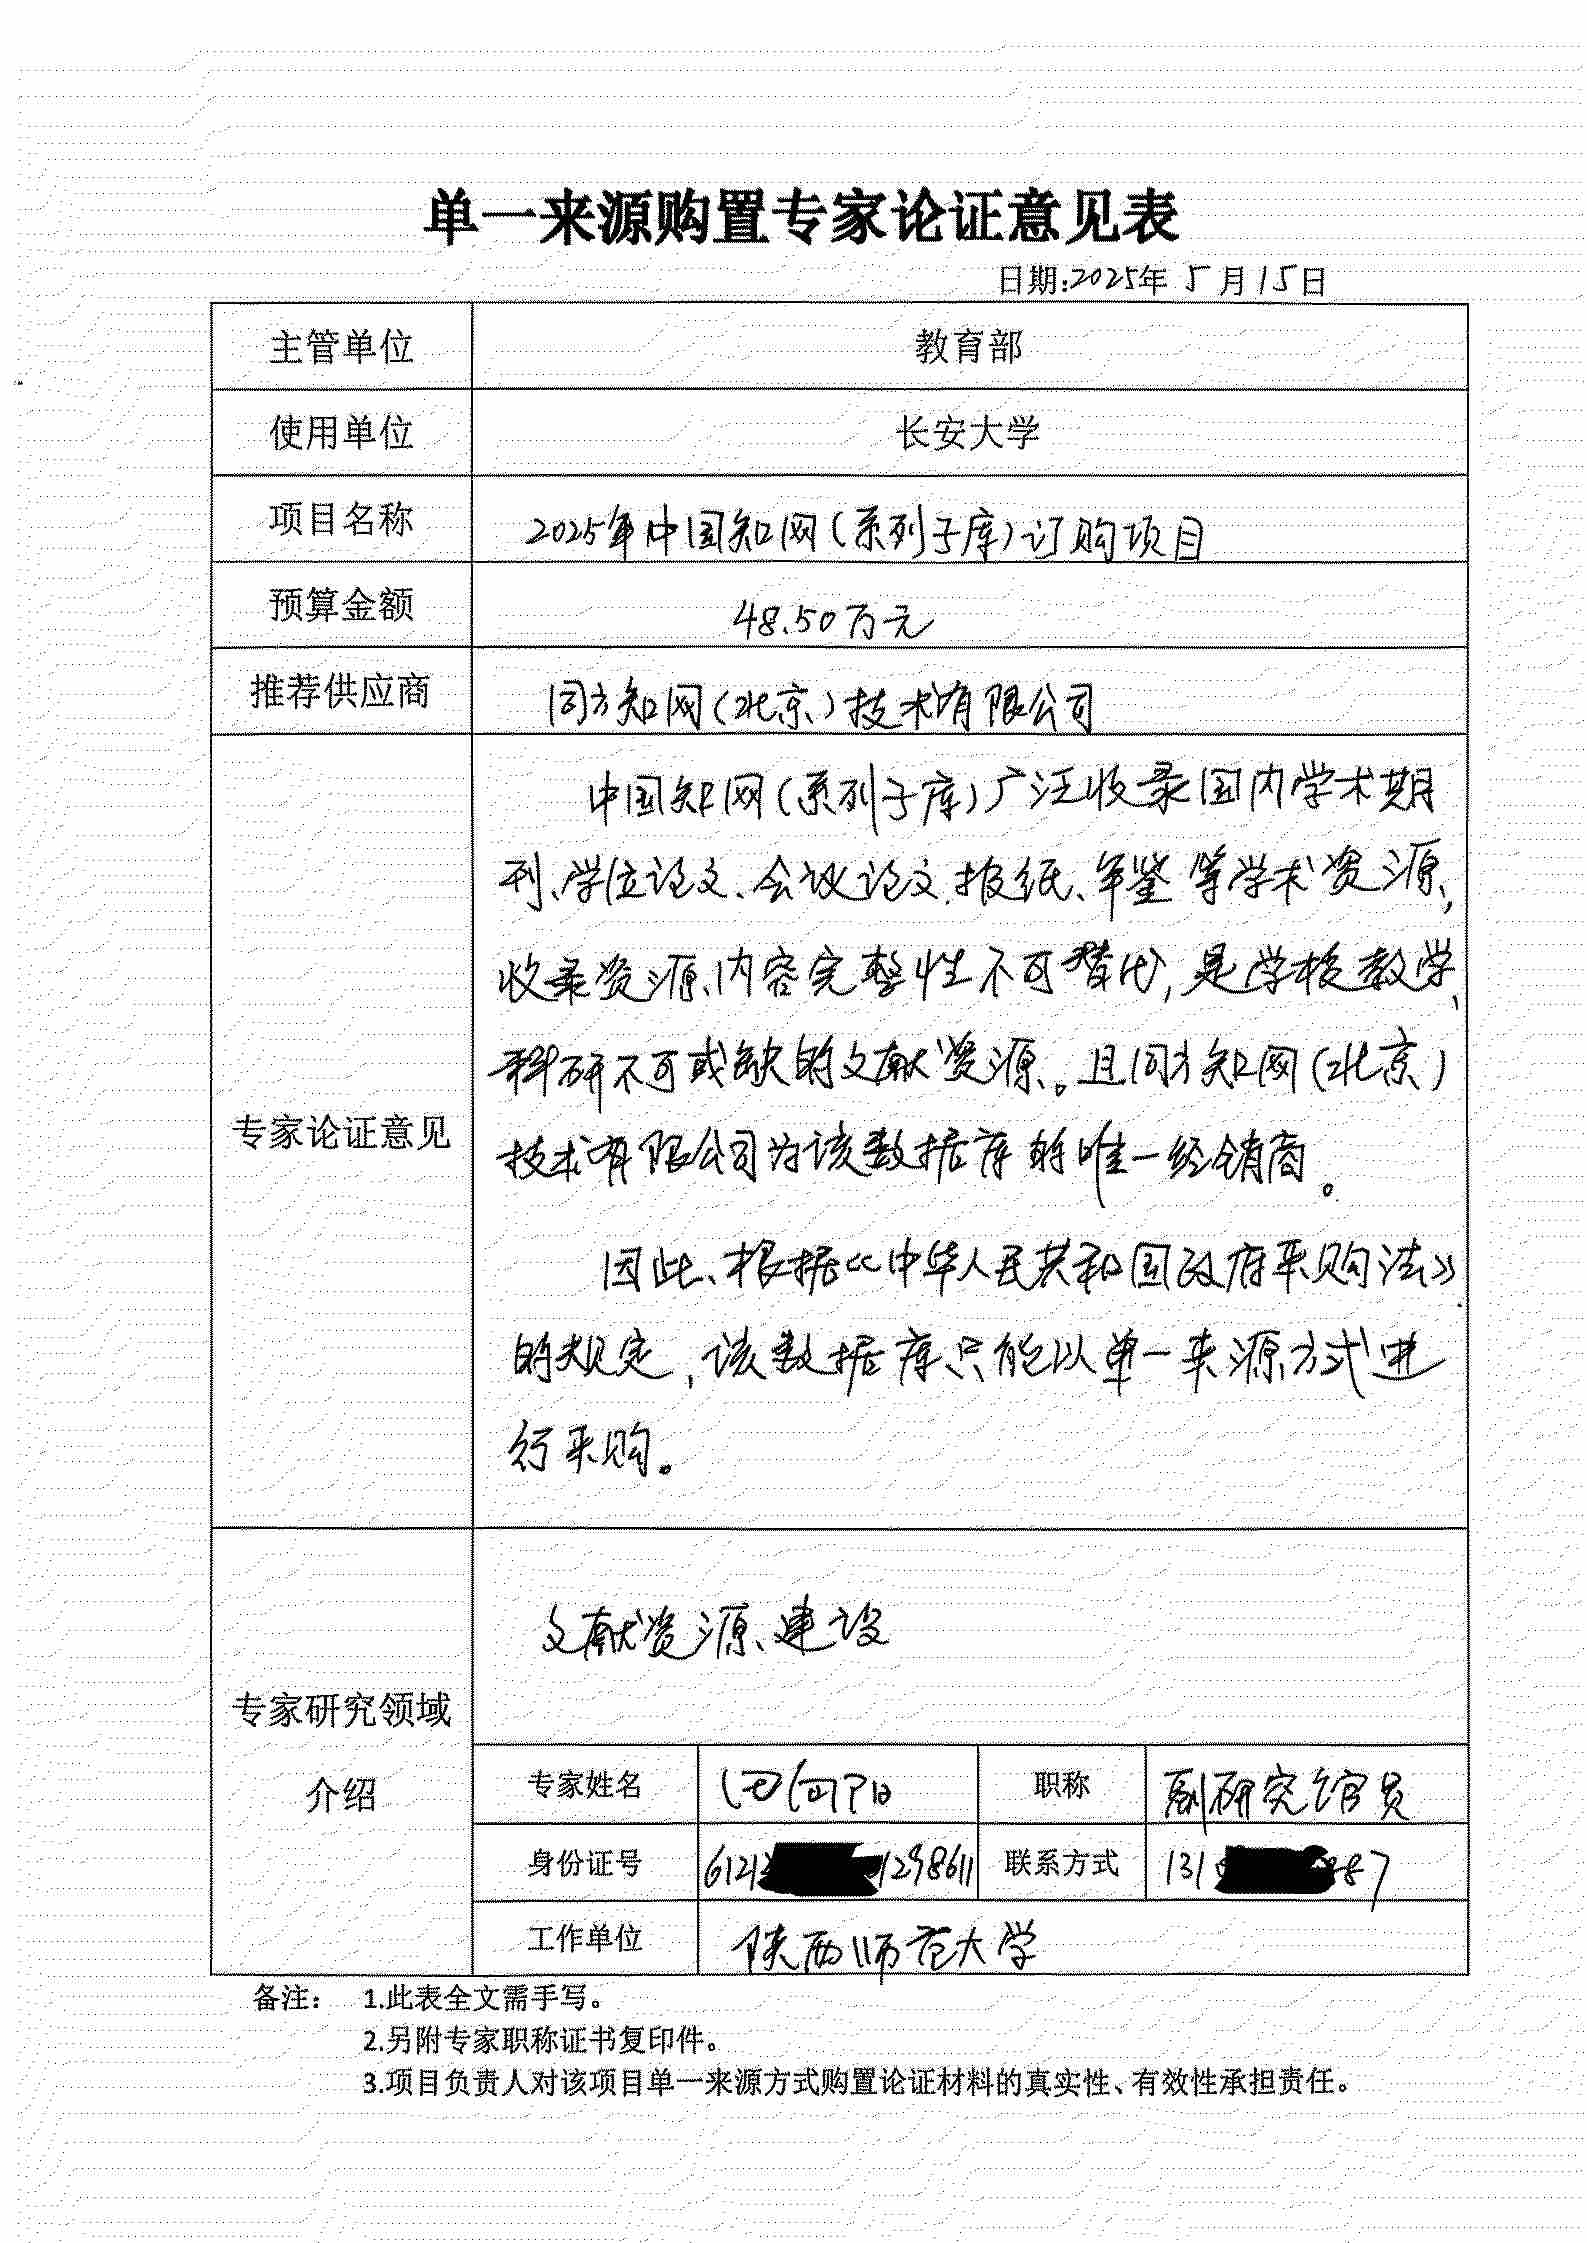 单一来源购置专家论证意见表
日期:2025年5月15日
主管单位 教育部
使用单位 长安大学
项目名称 2025年中国知网(系列子库)订购项目
预算金额 48.50万元
推荐供应商 同方知网(北京)技术有限公司
专家论证意见
中国知网(系列子库)广泛收录国内学术期
刊、学位论文、会议论文、报纸、年鉴等学术资源,
收录资源内容完整性不可替代,是学校教学、
科研不可或缺的文献资源。且同方知网(北京)
技术有限公司为该数据库的唯一经销商。
因此、根据《中华人民共和国政府采购法》
的规定,该数据库只能以单一来源方式进
行采购。
专家研究领域
介绍
文献资源建设
专家姓名 职称 副研究馆员
身份证号 6121 1298611 联系方式 131 887
工作单位 陕西师范大学
备注: 1.此表全文需手写。
2.另附专家职称证书复印件。
3.项目负责人对该项目单一来源方式购置论证材料的真实性、有效性承担责任。